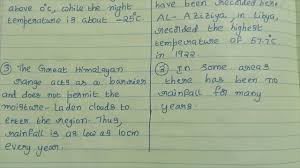 above 0°C, while the night
temperature is about -25°C.
③ The Great Himalayan
range acts as a barrier
and does not permit the
moisture-laden clouds to
enter the region. Thus,
rainfall is as low as 10cm
every year.
have been recorded here
AL-Aziziya, in Libya,
recorded the highest
temperature of 57.7°C
in 1922.
② In some areas
there has been no
rainfall for many
years.